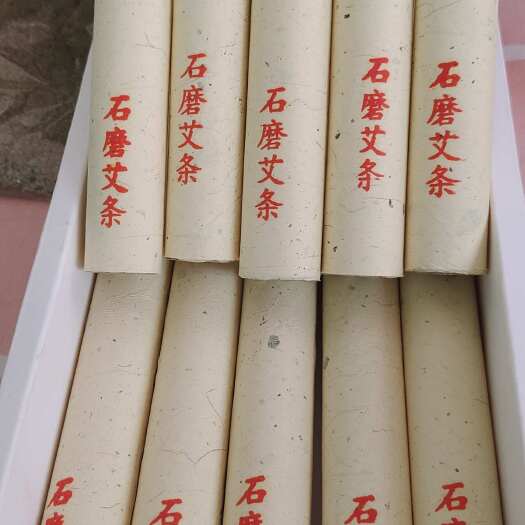 石磨艾条
石磨艾条
石磨艾条
石磨艾条
石磨艾条
石磨
石
石磨
石
石